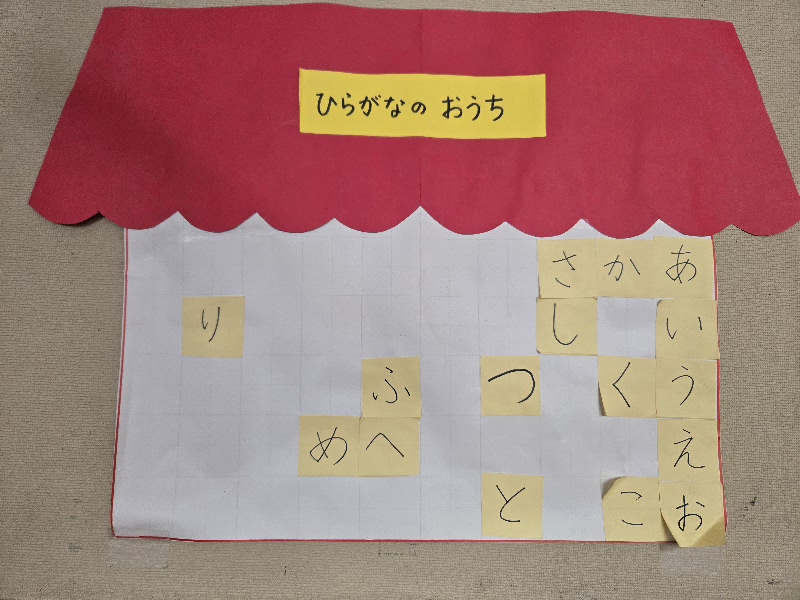 ひらがなの おうち
さ か あ
り し い
ふ つ く う
め へ え
と こ お